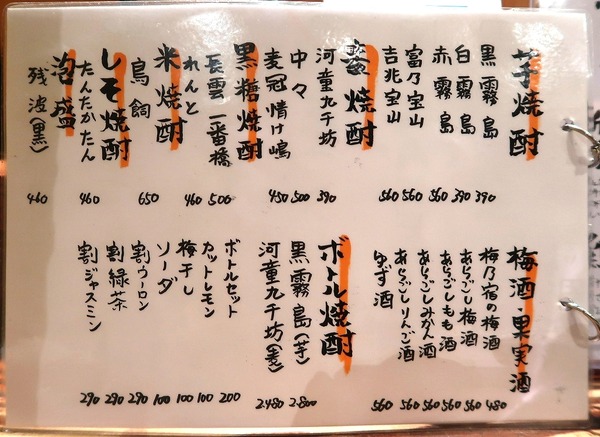 芋焼酎
黒霧島 390
白霧島 390
赤霧島 560
富乃宝山 560
吉兆宝山 560
麦焼酎
河童九千坊 390
中々 500
麦冠情け嶋 450
黒糖焼酎
長雲一番橋 500
れんと 460
米焼酎
鳥飼 650
しそ焼酎
たんたかたん 460
泡盛
残波(黒) 460
梅酒・果実酒
梅乃宿の梅酒 480
あらごし梅酒 560
あらごしもも酒 560
あらごしみかん酒 560
あらごしりんご酒 560
ゆず酒 560
ボトル焼酎
黒霧島(芋) 2.800
河童九千坊(麦) 2.480
ボトルセット 200
カットレモン 100
梅干し 100
ソーダ 100
割ウーロン 290
割緑茶 290
割ジャスミン 290